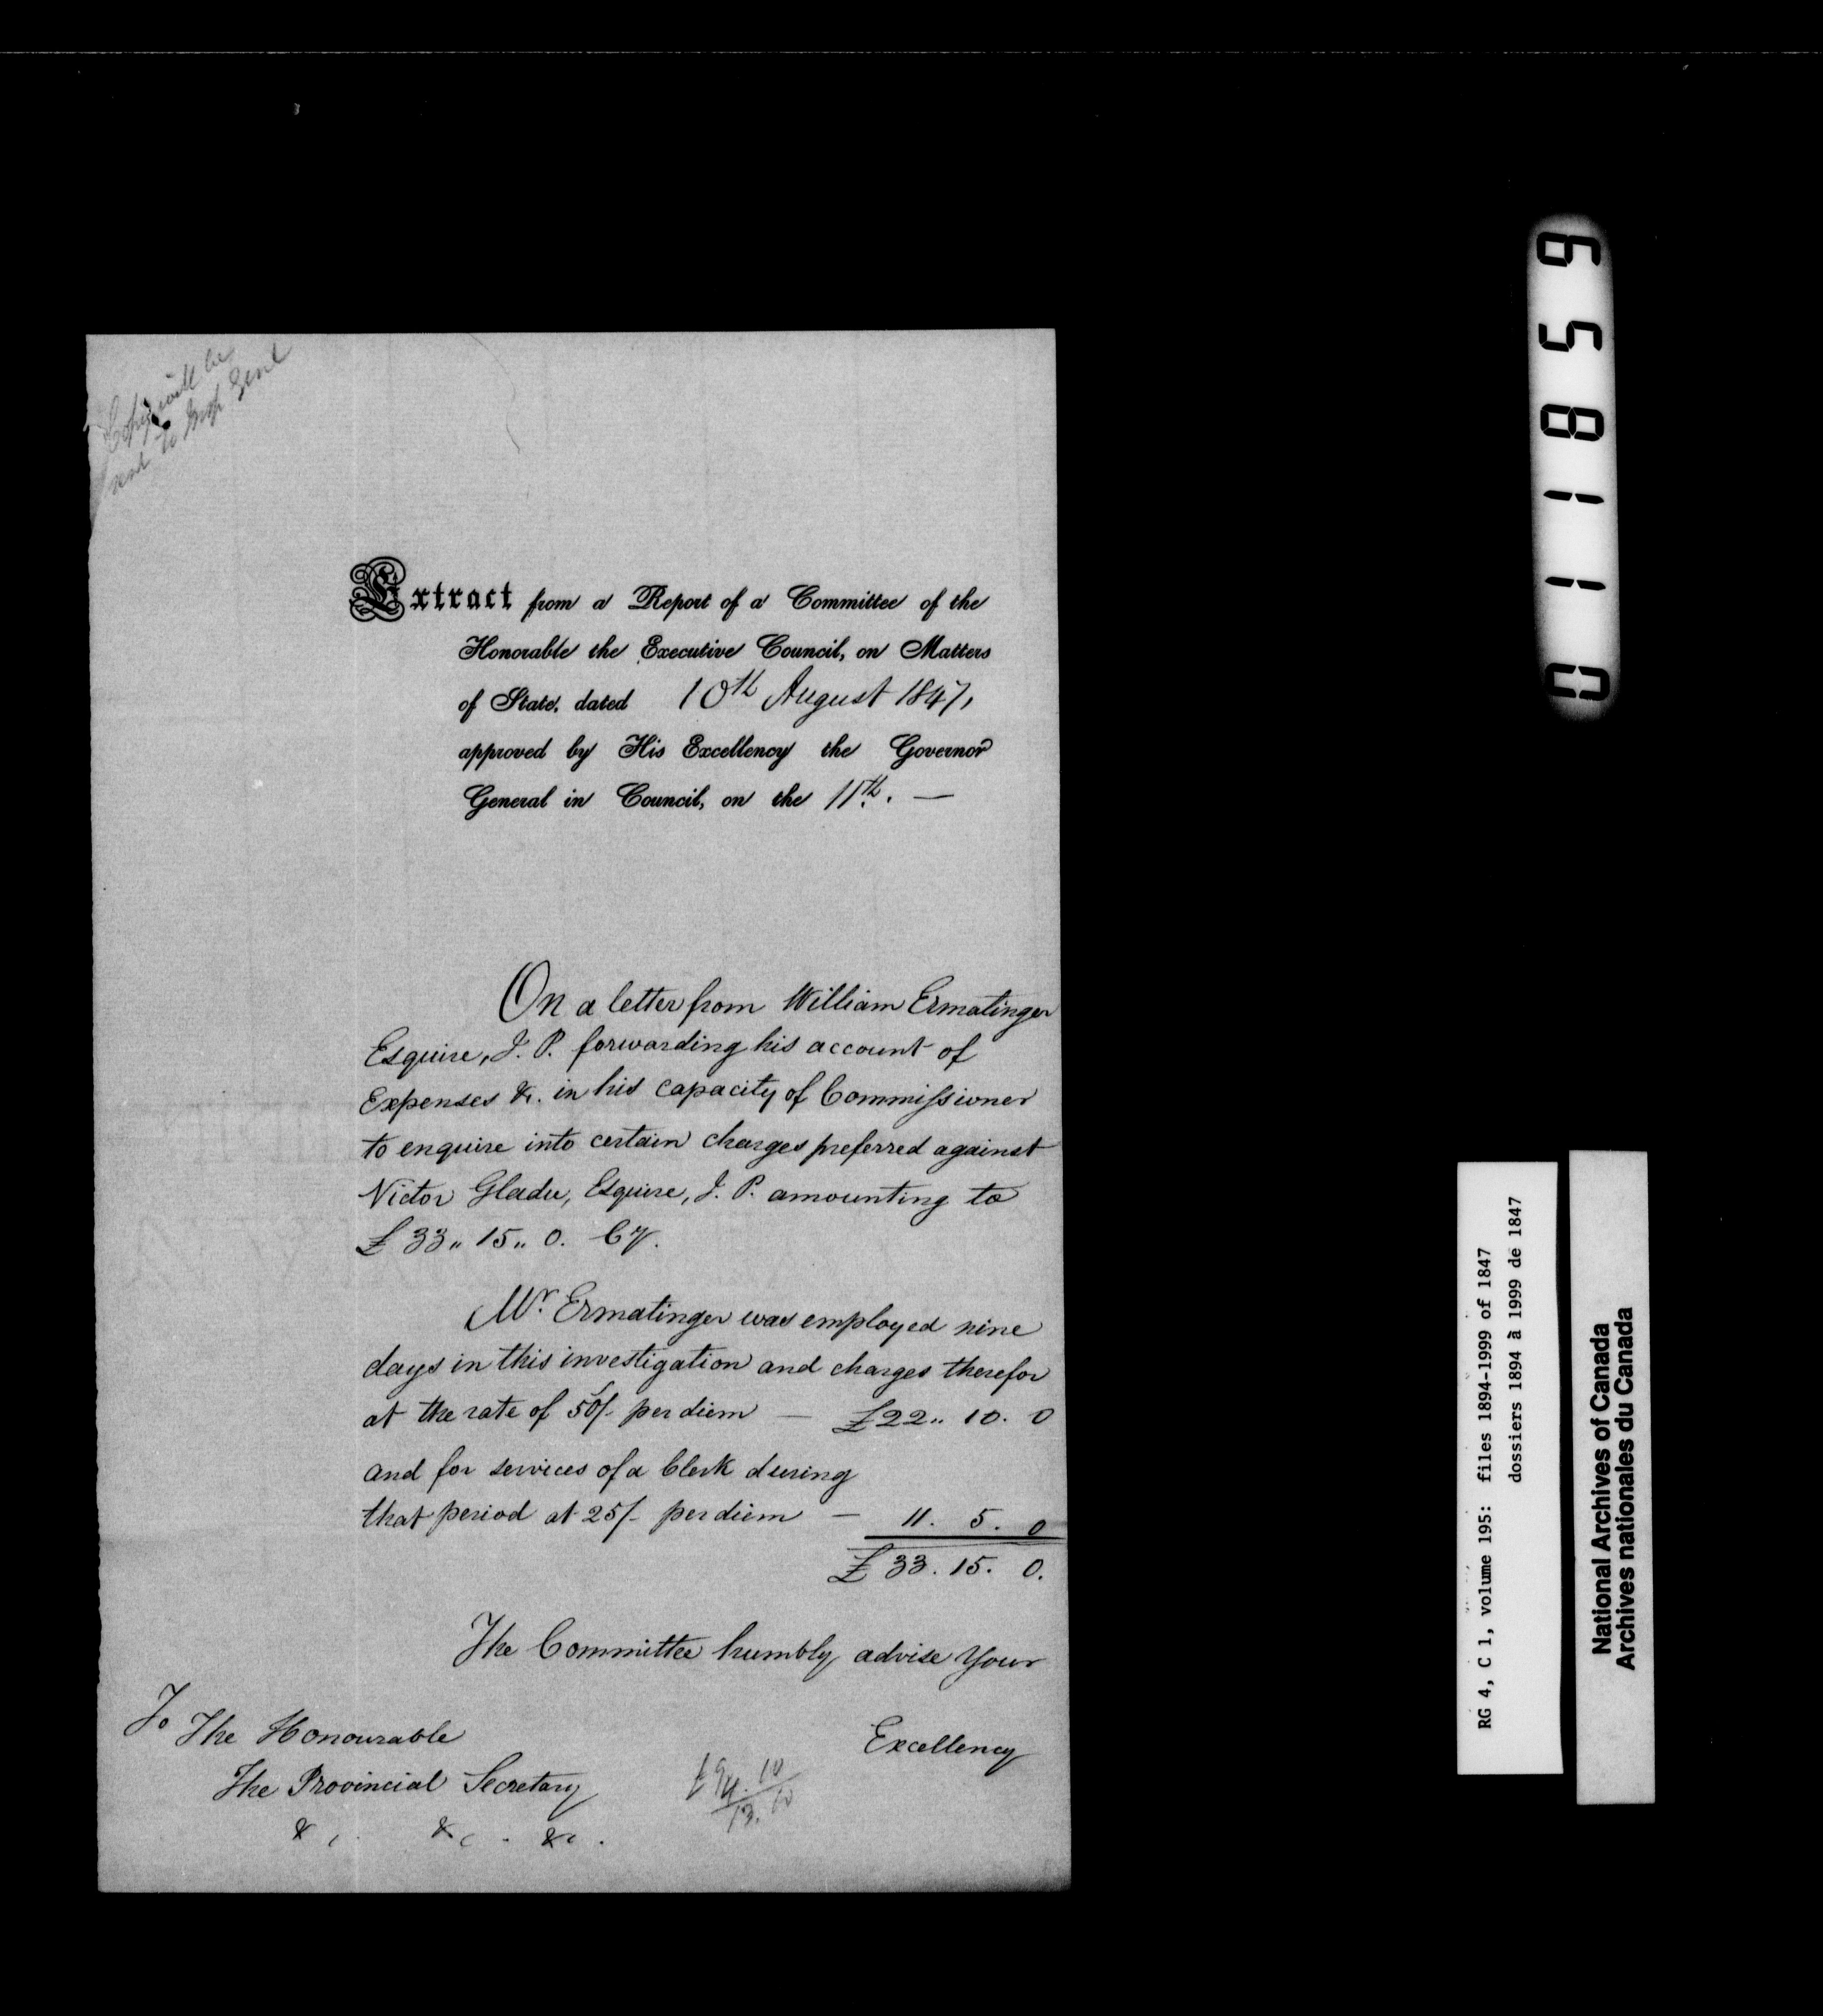 Copy will be
sent to Insp Genl
Extract from a Report of a Committee of the
Honorable the Executive Council, on Matters
of State, dated 10th August 1847,
approved by His Excellency the Governor
General in Council, on the 11th. —
On a letter from William Ermatinger
Esquire, J. P. forwarding his account of
Expenses &c. in his capacity of Commissioner
to enquire into certain charges preferred against
Victor Gladu, Esquire, J. P. amounting to
£ 33 " 15 " 0. Cy.
Mr. Ermatinger was employed nine
days in this investigation and charges therefor
at the rate of 50/- per diem — £22 " 10. 0
and for services of a Clerk during
that period at 25/- per diem — 11. 5. 0
£ 33. 15. 0.
The Committee humbly advise Your
Excellency
To The Honourable
The Provincial Secretary
&c. &c. &c.
011859
RG 4, C 1, volume 195: files 1894-1999 of 1847
dossiers 1894 à 1999 de 1847
National Archives of Canada
Archives nationales du Canada